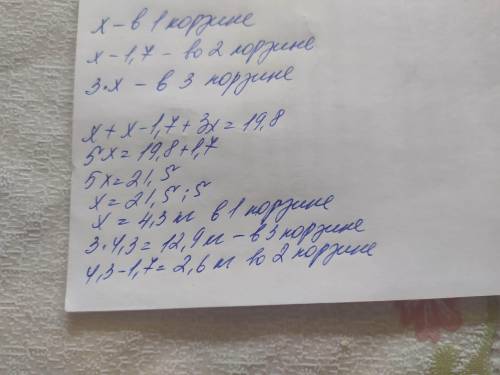 x - в 1 корзине
x - 1,7 - во 2 корзине
3·x - в 3 корзине
x + x - 1,7 + 3x = 19,8
5x = 19,8 + 1,7
5x = 21,5
x = 21,5 : 5
x = 4,3 кг в 1 корзине
3·4,3 = 12,9 кг - в 3 корзине
4,3 - 1,7 = 2,6 кг во 2 корзине